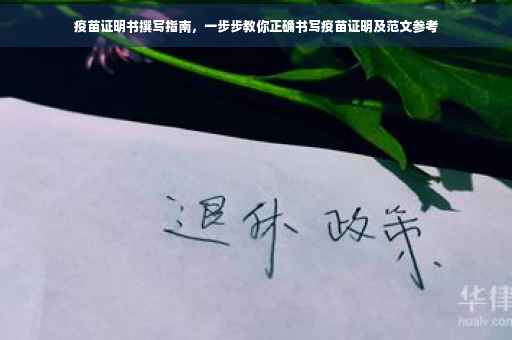 疫苗证明书撰写指南，一步步教你正确书写疫苗证明及范文参考
退休 政策
华律
hualv.com